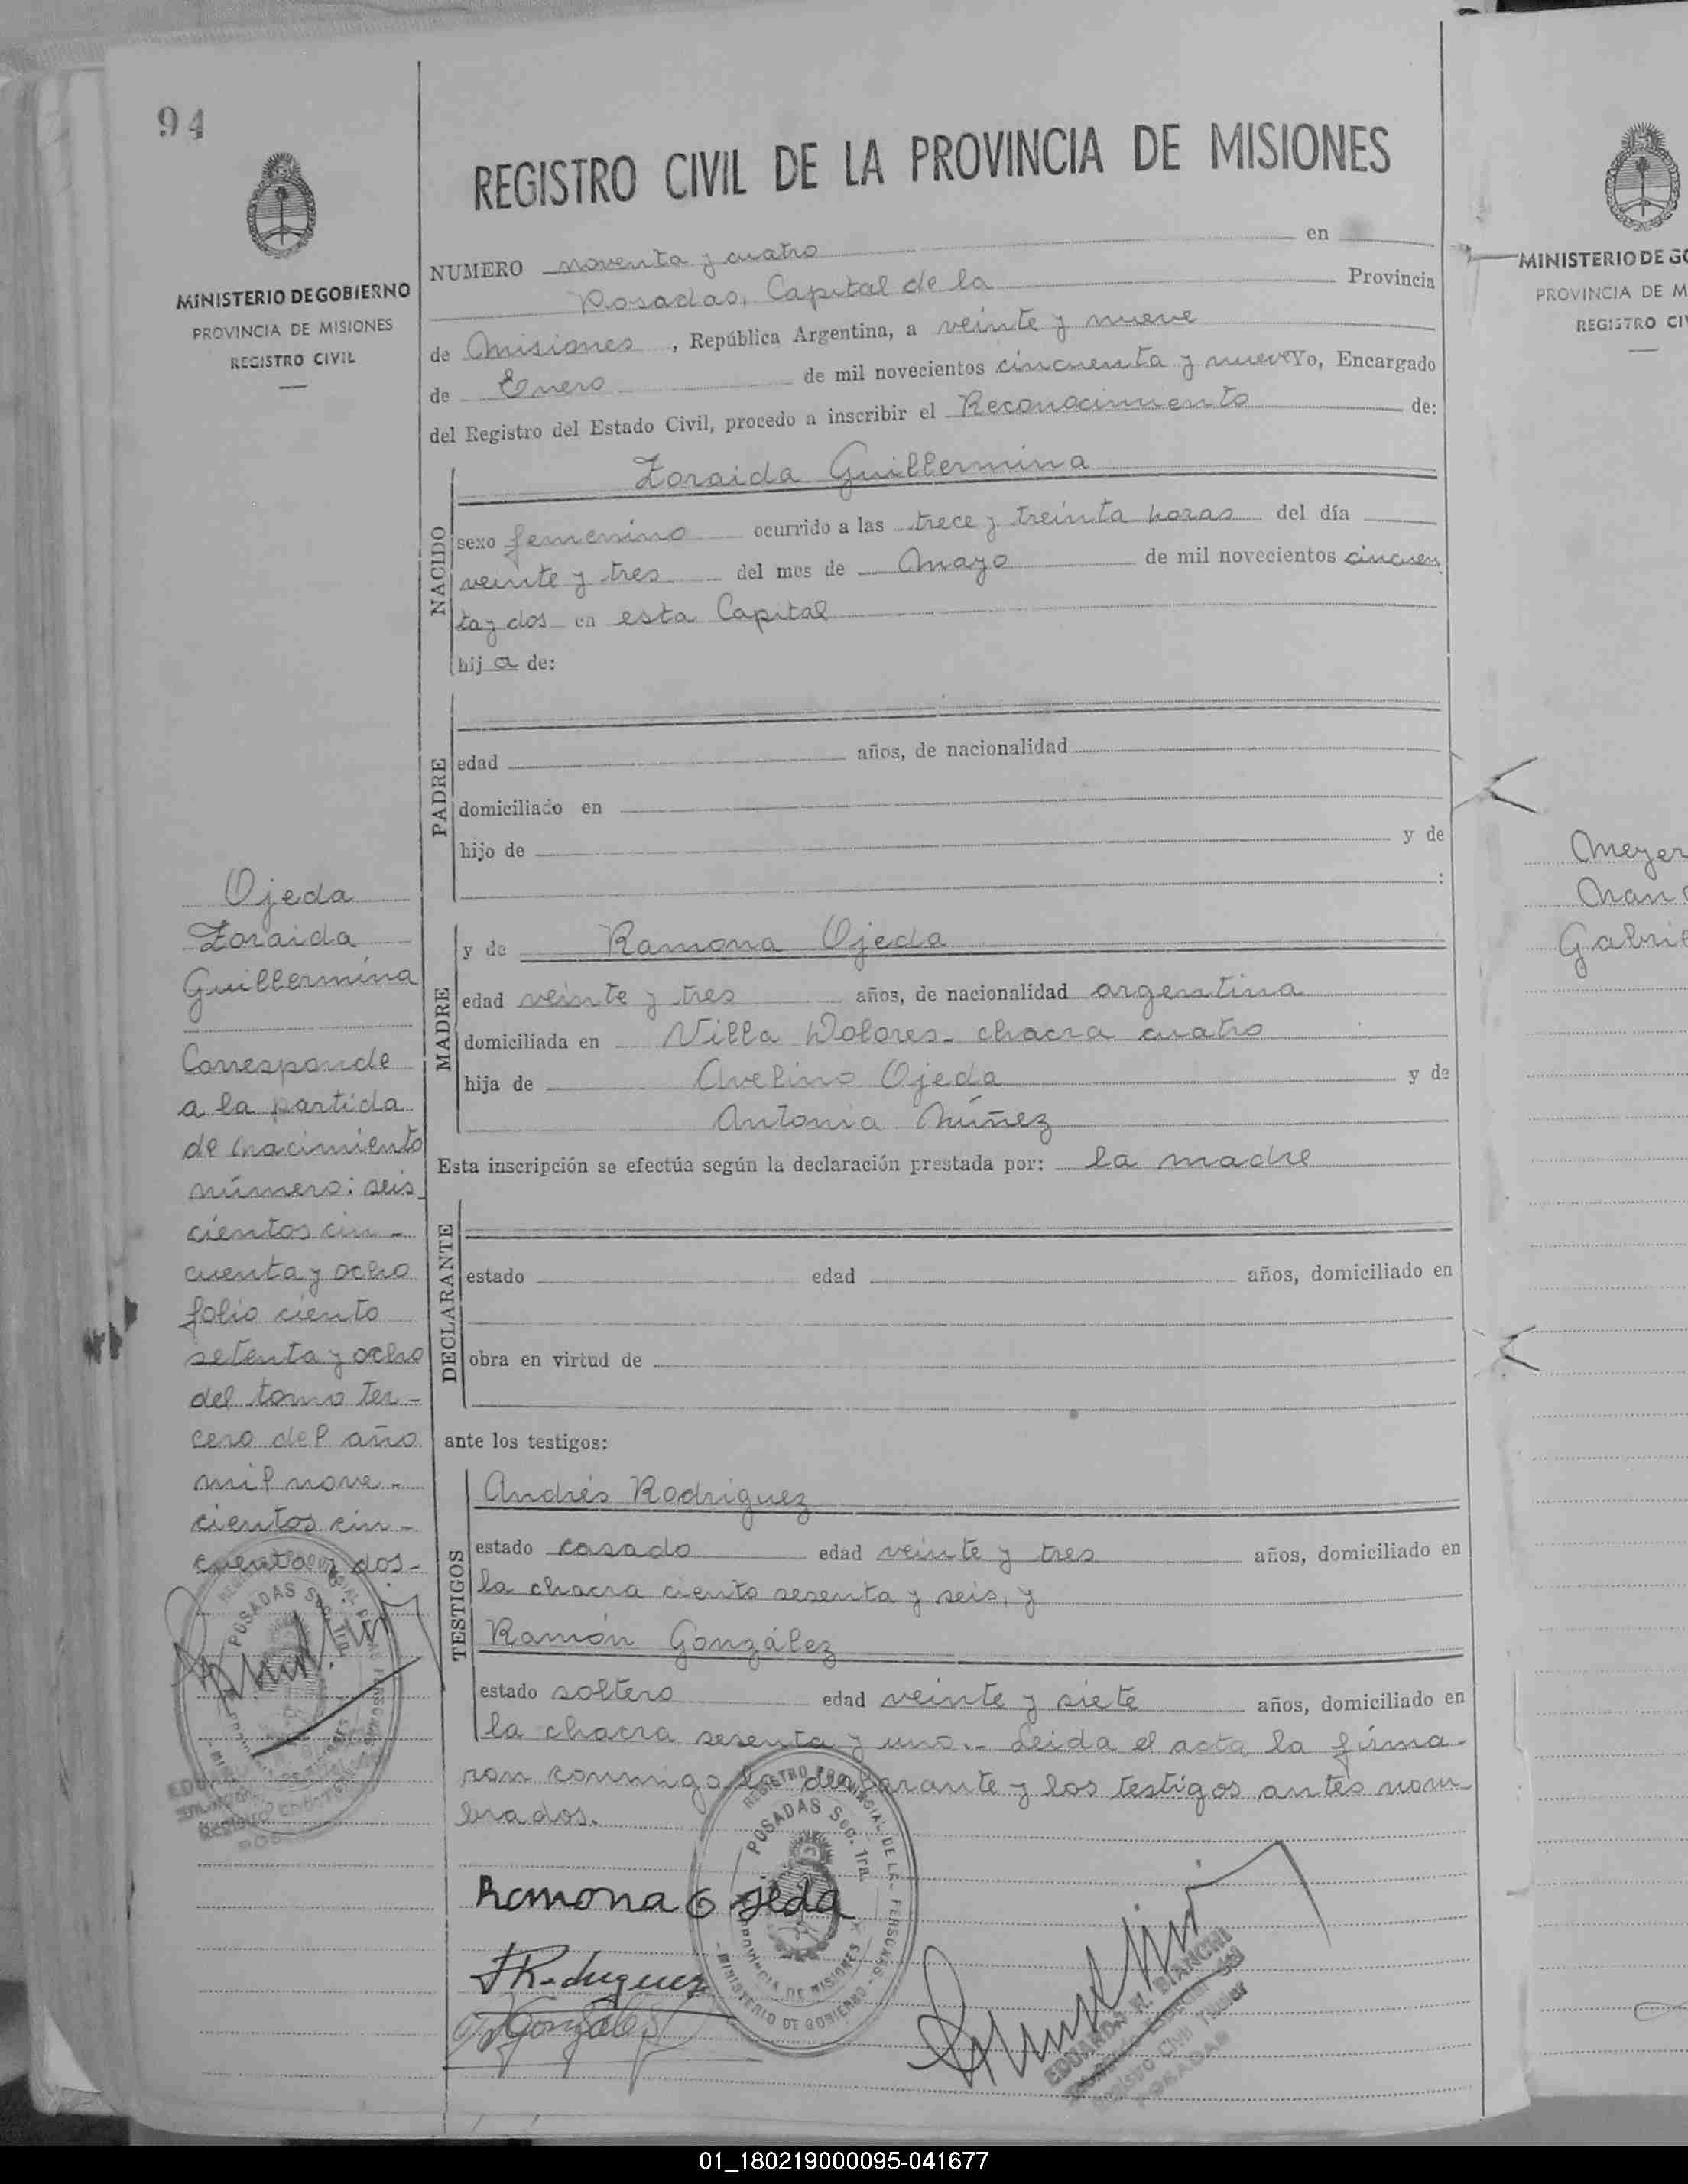 94
MINISTERIO DE GOBIERNO
PROVINCIA DE MISIONES
REGISTRO CIVIL
Ojeda
Zoraida
Guillermina
Corresponde
a la partida
de nacimiento
número: seis
cientos cin-
cuenta y ocho
folio ciento
setenta y ocho
del tomo ter-
cero del año
mil nove-
cientos cin-
cuenta y dos-
REGISTRO CIVIL DE LA PROVINCIA DE MISIONES
NUMERO noventa y cuatro en
Posadas, Capital de la Provincia
de Misiones, República Argentina, a veinte y nueve
de Enero de mil novecientos cincuenta y nueve Yo, Encargado
del Registro del Estado Civil, procedo a inscribir el Reconocimiento de:
NACIDO
Zoraida Guillermina
sexo femenino ocurrido a las trece y treinta horas del día
veinte y tres del mes de Mayo de mil novecientos cincuen
ta y dos en esta Capital
hija de:
PADRE
edad años, de nacionalidad
domiciliado en
hijo de y de
:
MADRE
y de Ramona Ojeda
edad veinte y tres años, de nacionalidad argentina
domiciliada en Villa Dolores- chacra cuatro
hija de Avelino Ojeda y de
Antonia Núñez
Esta inscripción se efectúa según la declaración prestada por: la madre
DECLARANTE
estado edad años, domiciliado en
obra en virtud de
ante los testigos:
TESTIGOS
Andrés Rodriguez
estado casado edad veinte y tres años, domiciliado en
la chacra ciento sesenta y seis, y
Ramón González
estado soltero edad veinte y siete años, domiciliado en
la chacra sesenta y uno.- Leida el acta la firma-
ron conmigo la declarante y los testigos antes nom
brados.
REGISTRO PROVINCIAL DE LAS PERSONAS
POSADAS Sec. 1ra.
PROVINCIA DE MISIONES
MINISTERIO DE GOBIERNO
Ramona Ojeda
Rodriguez
González
EDUARDO R. BIANCHI
Registro Civil Titular
POSADAS
MINISTERIO DE GO
PROVINCIA DE M
REGISTRO CIV
Meyer
Gabrie
01_180219000095-041677